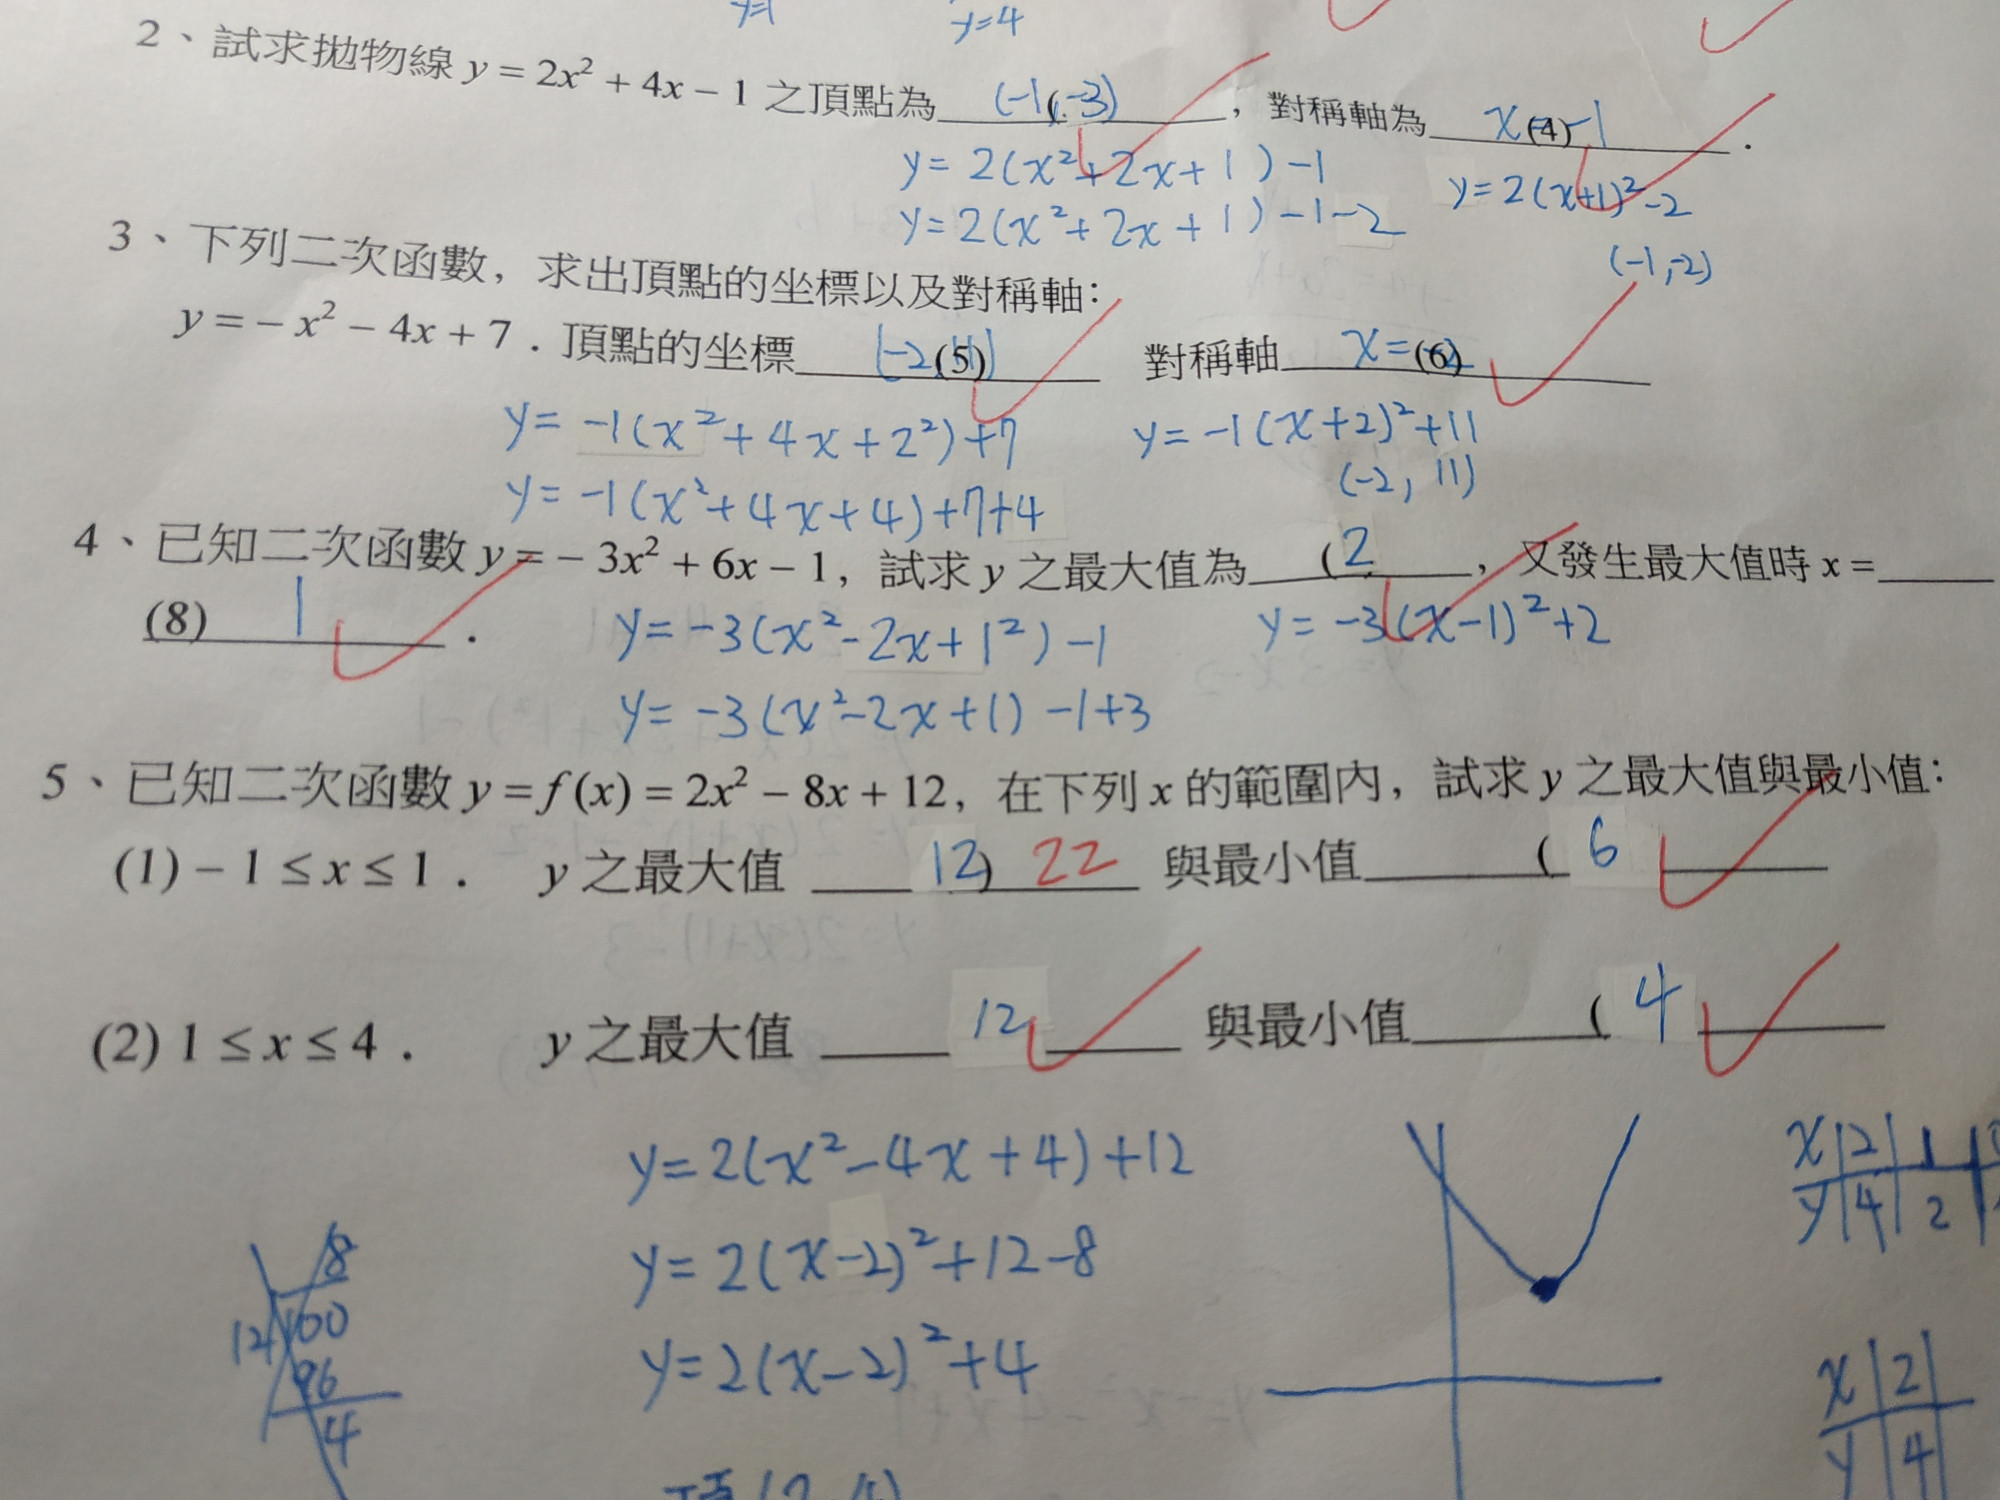 y=1 y=4
2、試求拋物線 y = 2x² + 4x − 1 之頂點為 (-1,-3) ,對稱軸為 x(4)-1 .
y=2(x²+2x+1)-1 y=2(x+1)²-2
y=2(x²+2x+1)-1-2 (-1,-2)
3、下列二次函數,求出頂點的坐標以及對稱軸:
y = − x² − 4x + 7 . 頂點的坐標 (-2(5)11) 對稱軸 x=(6)
y=-1(x²+4x+2²)+7 y=-1(x+2)²+11
y=-1(x²+4x+4)+7+4 (-2, 11)
4、已知二次函數 y = − 3x² + 6x − 1, 試求 y 之最大值為 (2 ,又發生最大值時 x =
(8) 1 .
y=-3(x²-2x+1²)-1 y=-3(x-1)²+2
y=-3(x²-2x+1)-1+3
5、已知二次函數 y = f (x) = 2x² − 8x + 12, 在下列 x 的範圍內, 試求 y 之最大值與最小值:
(1) − 1 ≤ x ≤ 1 . y 之最大值 12) 22 與最小值 ( 6
(2) 1 ≤ x ≤ 4 . y 之最大值 12 與最小值 ( 4
y=2(x²-4x+4)+12
y=2(x-2)²+12-8
y=2(x-2)²+4
x 2 1
y 4 2
8
12 100
96
4
x 2
y 4